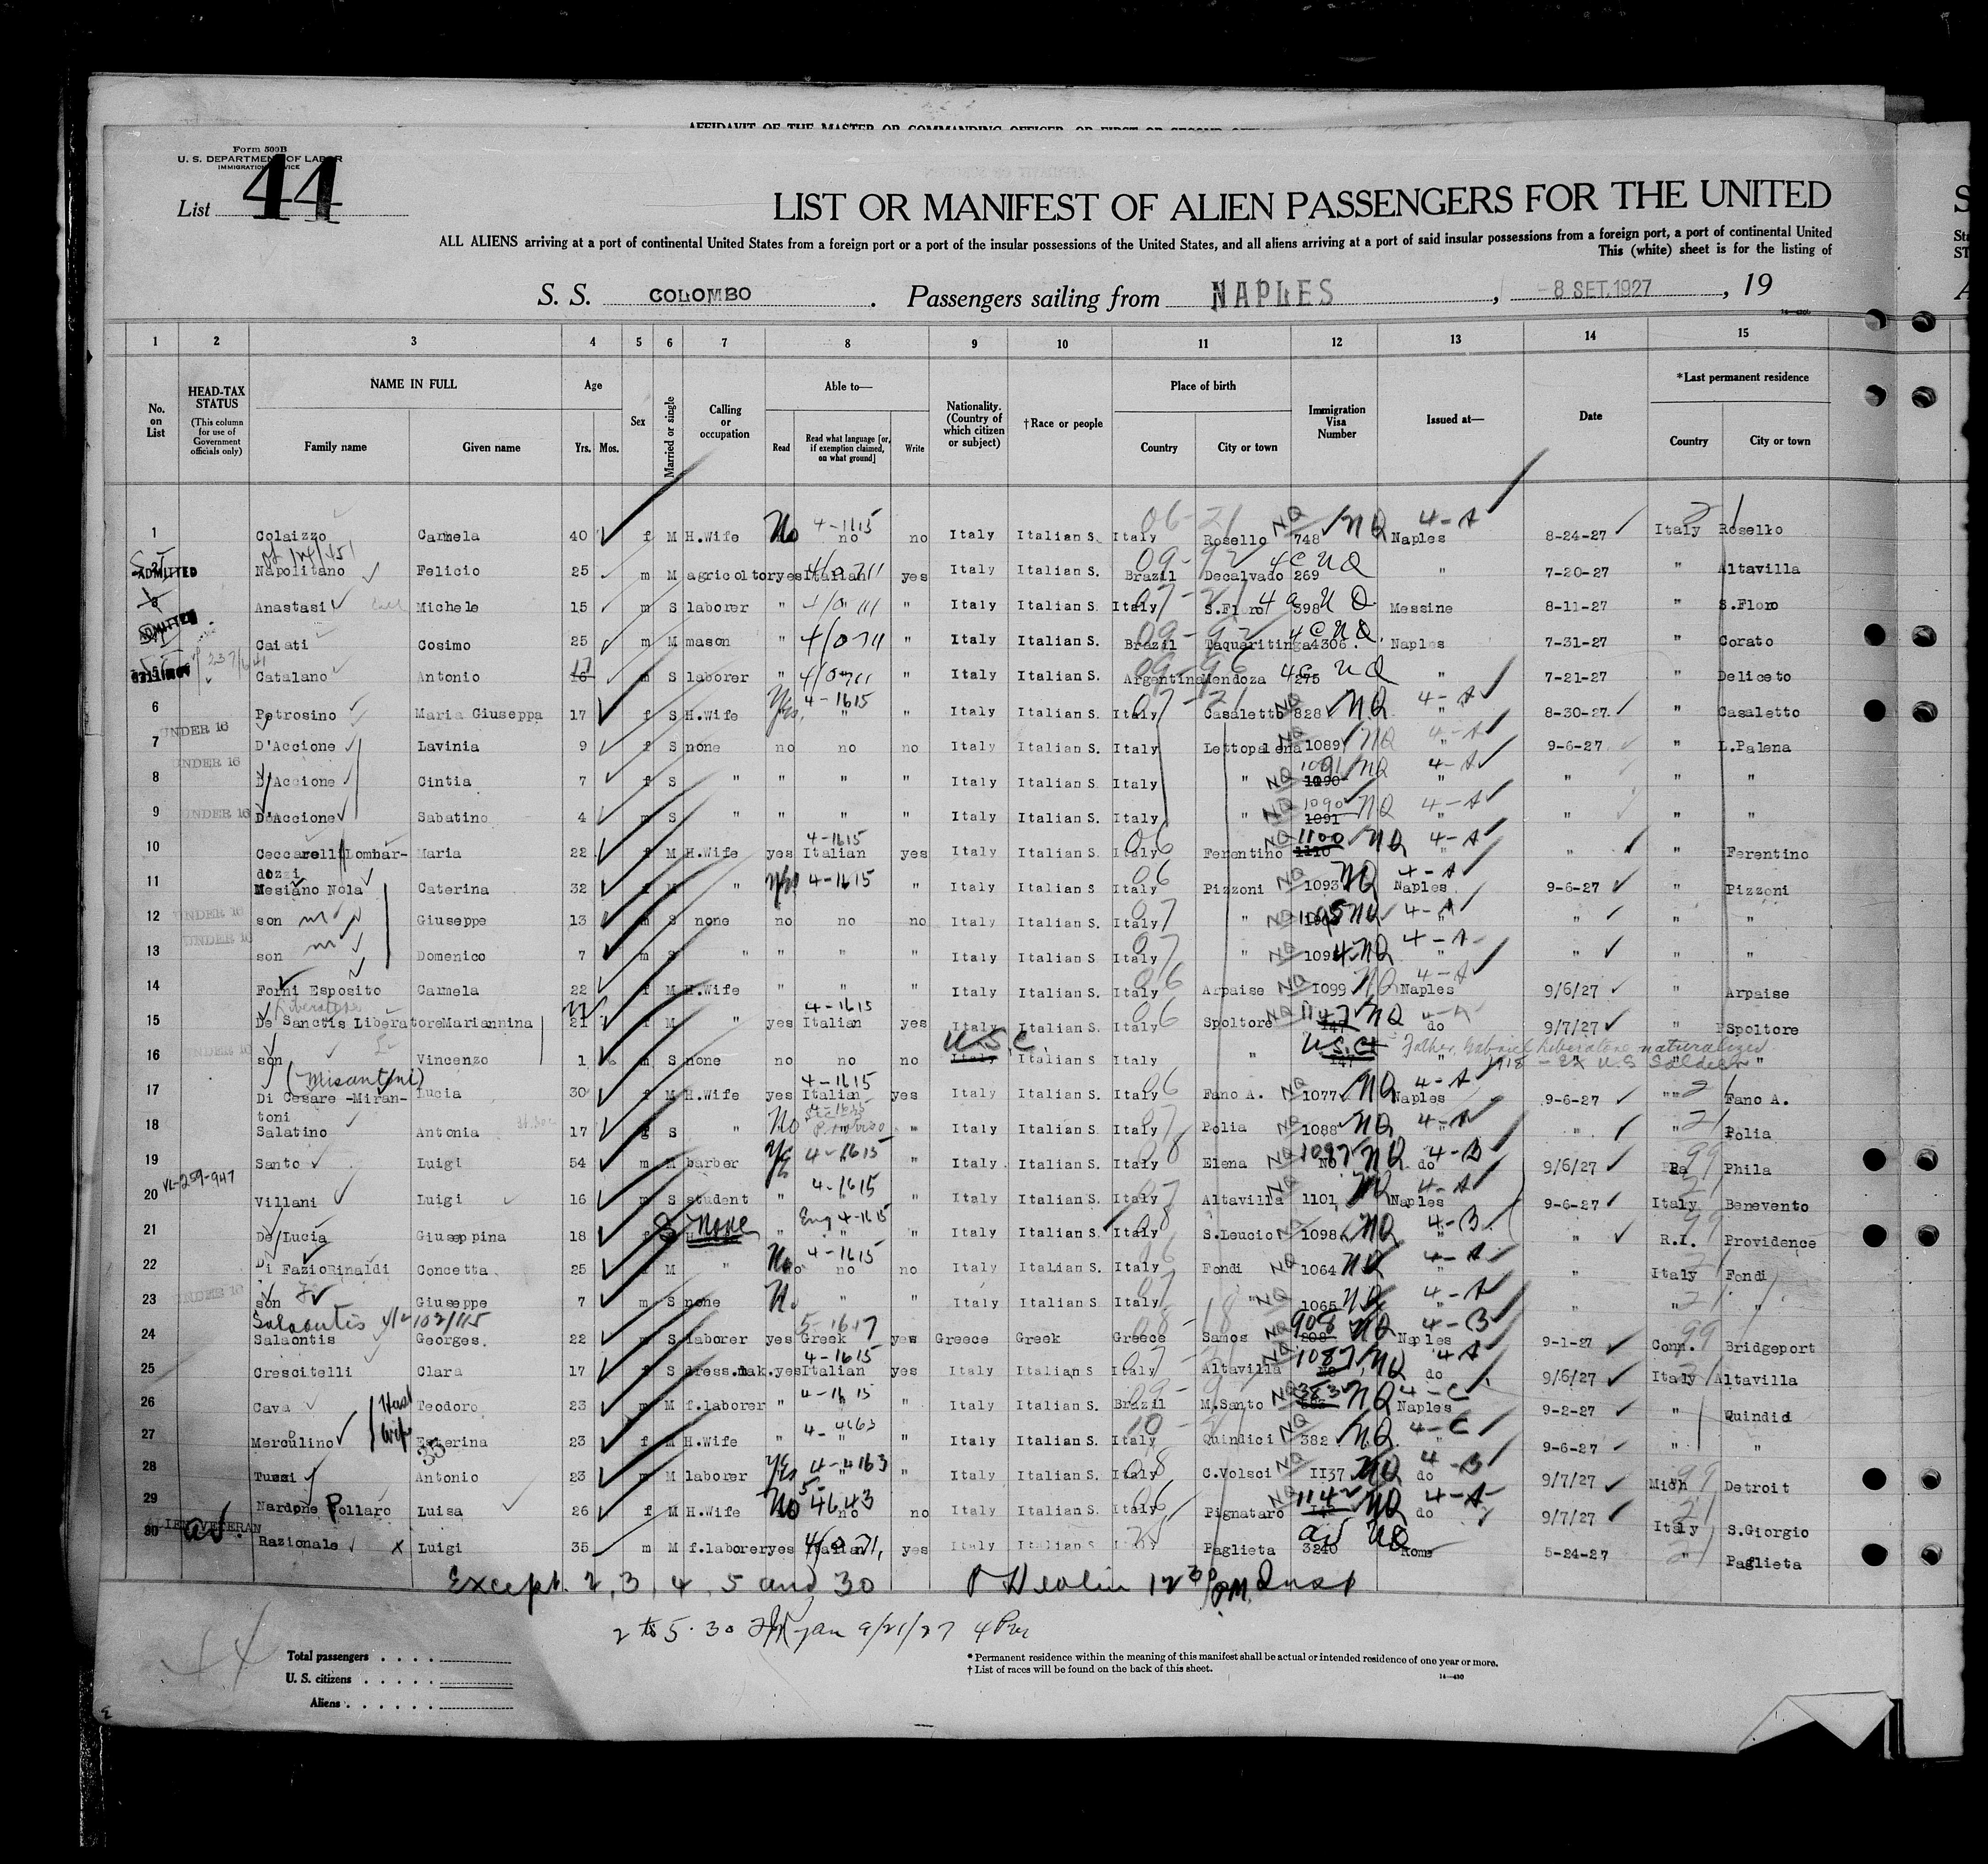 AFFIDAVIT OF THE MASTER OR COMMANDING OFFICER, OR FIRST OR SECOND
Form 500B
U. S. DEPARTMENT OF LABOR
IMMIGRATION SERVICE
List 44
LIST OR MANIFEST OF ALIEN PASSENGERS FOR THE UNITED
ALL ALIENS arriving at a port of continental United States from a foreign port or a port of the insular possessions of the United States, and all aliens arriving at a port of said insular possessions from a foreign port, a port of continental United
This (white) sheet is for the listing of
S. S. COLOMBO. Passengers sailing from NAPLES, -8 SET.1927, 19
1 2 3 4 5 6 7 8 9 10 11 12 13 14 15
No. on List
HEAD-TAX STATUS (This column for use of Government officials only)
NAME IN FULL Family name Given name
Age Yrs. Mos.
Sex
Married or single
Calling or occupation
Able to— Read Read what language [or, if exemption claimed, on what ground] Write
Nationality. (Country of which citizen or subject)
†Race or people
Place of birth Country City or town
Immigration Visa Number
Issued at—
Date
*Last permanent residence Country City or town
1 Colaizzo Carmela 40 f M H.Wife No 4-1615 no no Italy Italian S. Italy Rosello NQ 748 NQ 4-A Naples 8-24-27 Italy Rosello
ADMITTED Napolitano Felicio 25 m M agricoltor yes Italian yes Italy Italian S. Brazil Decalvado 269 4C NQ " 7-20-27 " Altavilla
Anastasi Michele 15 m S laborer " " " Italy Italian S. Italy S.Floro 598 NQ Messine 8-11-27 " S.Floro
ADMITTED Caiati Cosimo 25 m M mason " " Italy Italian S. Brazil Taquaritinga 4306. 4C NQ. Naples 7-31-27 " Corato
Catalano Antonio 17 16 m S laborer " " Italy Italian S. Argentina Mendoza 275 NQ " 7-21-27 " Deliceto
6 Petrosino Maria Giuseppa 17 f S H.Wife Yes. 4-1615 " " Italy Italian S. Italy Casaletto NQ 828 NQ 4-A " 8-30-27 " Casaletto
UNDER 16
7 D'Accione Lavinia 9 f S none no no no Italy Italian S. Italy Lettopalena NQ 1089 NQ 4-A " 9-6-27 " L.Palena
UNDER 16
8 D'Accione Cintia 7 f S " " " " Italy Italian S. Italy " NQ 1091 1090 NQ 4-A " " " "
9 UNDER 16 D'Accione Sabatino 4 m S " " " " Italy Italian S. Italy " NQ 1090 1091 NQ 4-A " " " "
10 Ceccarelli Lombar- dozzi Maria 22 f M H.Wife yes 4-1615 Italian yes Italy Italian S. Italy 06 Ferentino NQ 1100 1110 NQ 4-A " " Ferentino
11 Mesiano Nola Caterina 32 f M " yes 4-1615 Italy Italian S. Italy 06 Pizzoni NQ 1093 NQ 4-A Naples 9-6-27 " Pizzoni
12 UNDER 16 son m Giuseppe 13 m S none no no no Italy Italian S. Italy 07 " NQ 1095 NQ 4-A " " " "
UNDER 16
13 son m Domenico 7 m S " " " " Italy Italian S. Italy 07 " NQ 1094 NQ 4-A " " " "
14 Forni Esposito Carmela 22 f M H.Wife " " " Italy Italian S. Italy 06 Arpaise NQ 1099 NQ 4-A Naples 9/6/27 " Arpaise
15 De Sanctis Liberatore Mariannina 21 f M " yes 4-1615 Italian yes Italy Italian S. Italy 06 Spoltore NQ 1147 147 NQ do 9/7/27 " Spoltore
16 UNDER 16 son Vincenzo 1 m S none no no no U.S.C. Italy Italian S. Italy " U.S.Ct 147 " Father, Gabriel Liberatore naturalized 1918 - Ex U.S Soldier " "
(Misantoni)
17 Di Cesare -Miran- toni Lucia 30 f M H.Wife yes 4-1615 Italian yes Italy Italian S. Italy 06 Fano A. NQ 1077 NQ 4-A Naples 9-6-27 " Fano A.
18 Salatino Antonia 17 f S " No " Italy Italian S. Italy 07 Polia NQ 1088 NQ 4-A " " " Polia
19 Santo Luigi 54 m M barber Yes 4-1615 " Italy Italian S. Italy 08 Elena NQ 1097 No NQ 4-B do 9/6/27 Pa Phila
VL-259-947
20 Villani Luigi 16 m S student " 4-1615 " Italy Italian S. Italy 07 Altavilla NQ 1101 NQ 4-A Naples 9-6-27 Italy Benevento
21 De Lucia Giuseppina 18 f S None " Eng 4-1615 " Italy Italian S. Italy 08 S.Leucio NQ 1098 NQ 4-B " " R.I. Providence
22 Di Fazio Rinaldi Concetta 25 f M " No 4-1615 no no Italy Italian S. Italy 06 Fondi NQ 1064 NQ 4-A " " Italy Fondi
23 UNDER 16 son Giuseppe 7 m S none No " " Italy Italian S. Italy 07 " NQ 1065 NQ 4-A " " " "
24 Salaontis Georges. 22 m S laborer yes 5-1617 Greek yes Greece Greek Greece Samos NQ 908 208 NQ 4-B Naples 9-1-27 Conn. 99 Bridgeport
25 Crescitelli Clara 17 f S dress.mak. yes 4-1615 Italian yes Italy Italian S Italy 07 Altavilla NQ 1087 NQ 4-A do 9/6/27 Italy Altavilla
26 Cava Husb Teodoro 23 m M f.laborer " 4-1615 " Italy Italian S. Brazil M.Santo NQ 383 NQ 4-C Naples 9-2-27 " Quindici
27 Merculino Wife Esterina 23 f M H.Wife " " " Italy Italian S. Italy Quindici NQ 382 NQ. 4-C " 9-6-27 " "
28 Tussi Antonio 23 m M laborer Yes 4-4163 " " Italy Italian S. Italy 08 C.Volsci NQ 1137 NQ 4-B do 9/7/27 Mich 99 Detroit
29 Nardone Pollaro Luisa 26 f M H.Wife No 4643 no no Italy Italian S. Italy 06 Pignataro NQ 1142 NQ 4-A do 9/7/27 Italy S.Giorgio
ALIEN VETERAN
30 av. Razionale X Luigi 35 m M f.laborer yes Italian yes Italy Italian S Italy Paglieta av 3240 NQ Rome 5-24-27 " Paglieta
Except. 2, 3, 4, 5 and 30 12 30 PM. Insp
2 to 5. 30 9/21/27 4 Pm
44
Total passengers
U. S. citizens
Aliens
* Permanent residence within the meaning of this manifest shall be actual or intended residence of one year or more.
† List of races will be found on the back of this sheet.
14—430